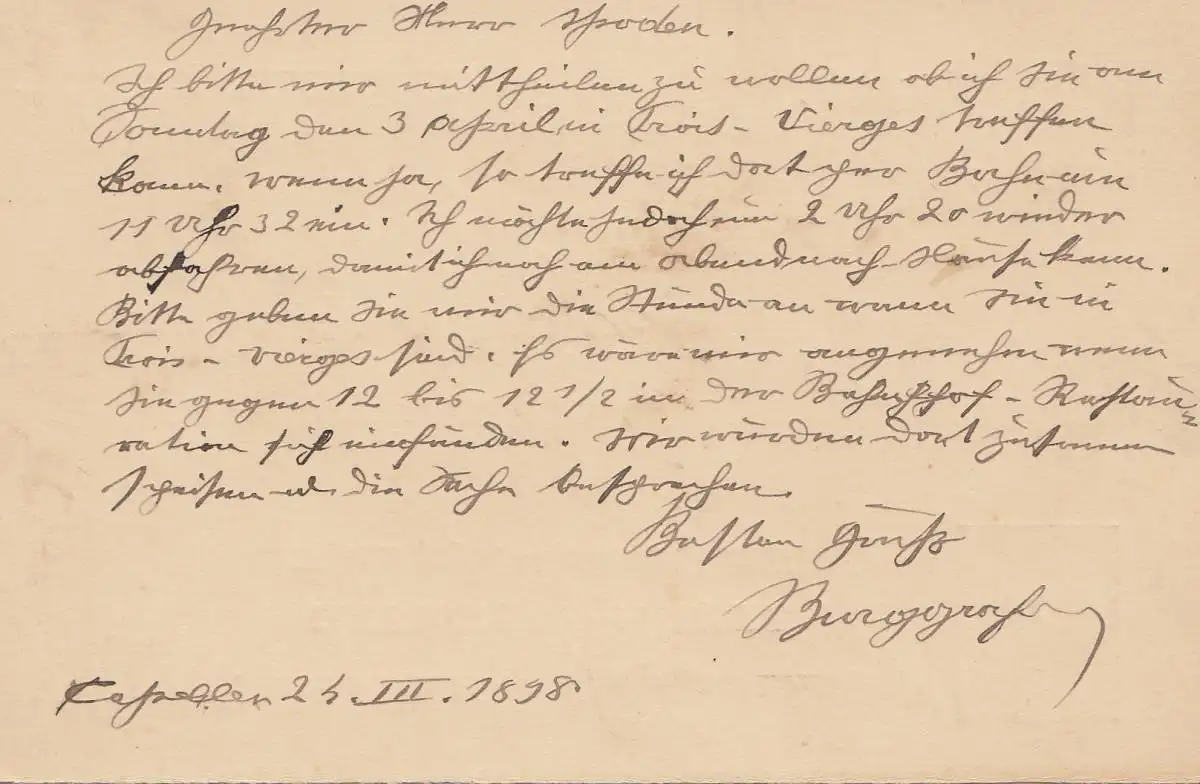 Geehrter Herr Thoden.
Ich bitte mir mittheilen zu wollen ob ich Sie am
Sonntag den 3 April in Trois-Vierges treffen
kann. Wenn ja, so treffe ich dort per Bahn um
11 Uhr 32 ein. Ich möchte jedoch um 2 Uhr 20 wieder
abfahren, damit ich noch am Abend nach Hause kann.
Bitte geben Sie mir die Stunde an wann Sie in
Trois-Vierges sind. Es wäre mir angenehm wenn
Sie gegen 12 bis 12 1/2 in der Bahnhof-Restau=
ration sich einfänden. Wir würden dort zusammen
speisen u. die Sache besprechen.
Besten Gruß
Burggraf
Capellen 2 .III.1898